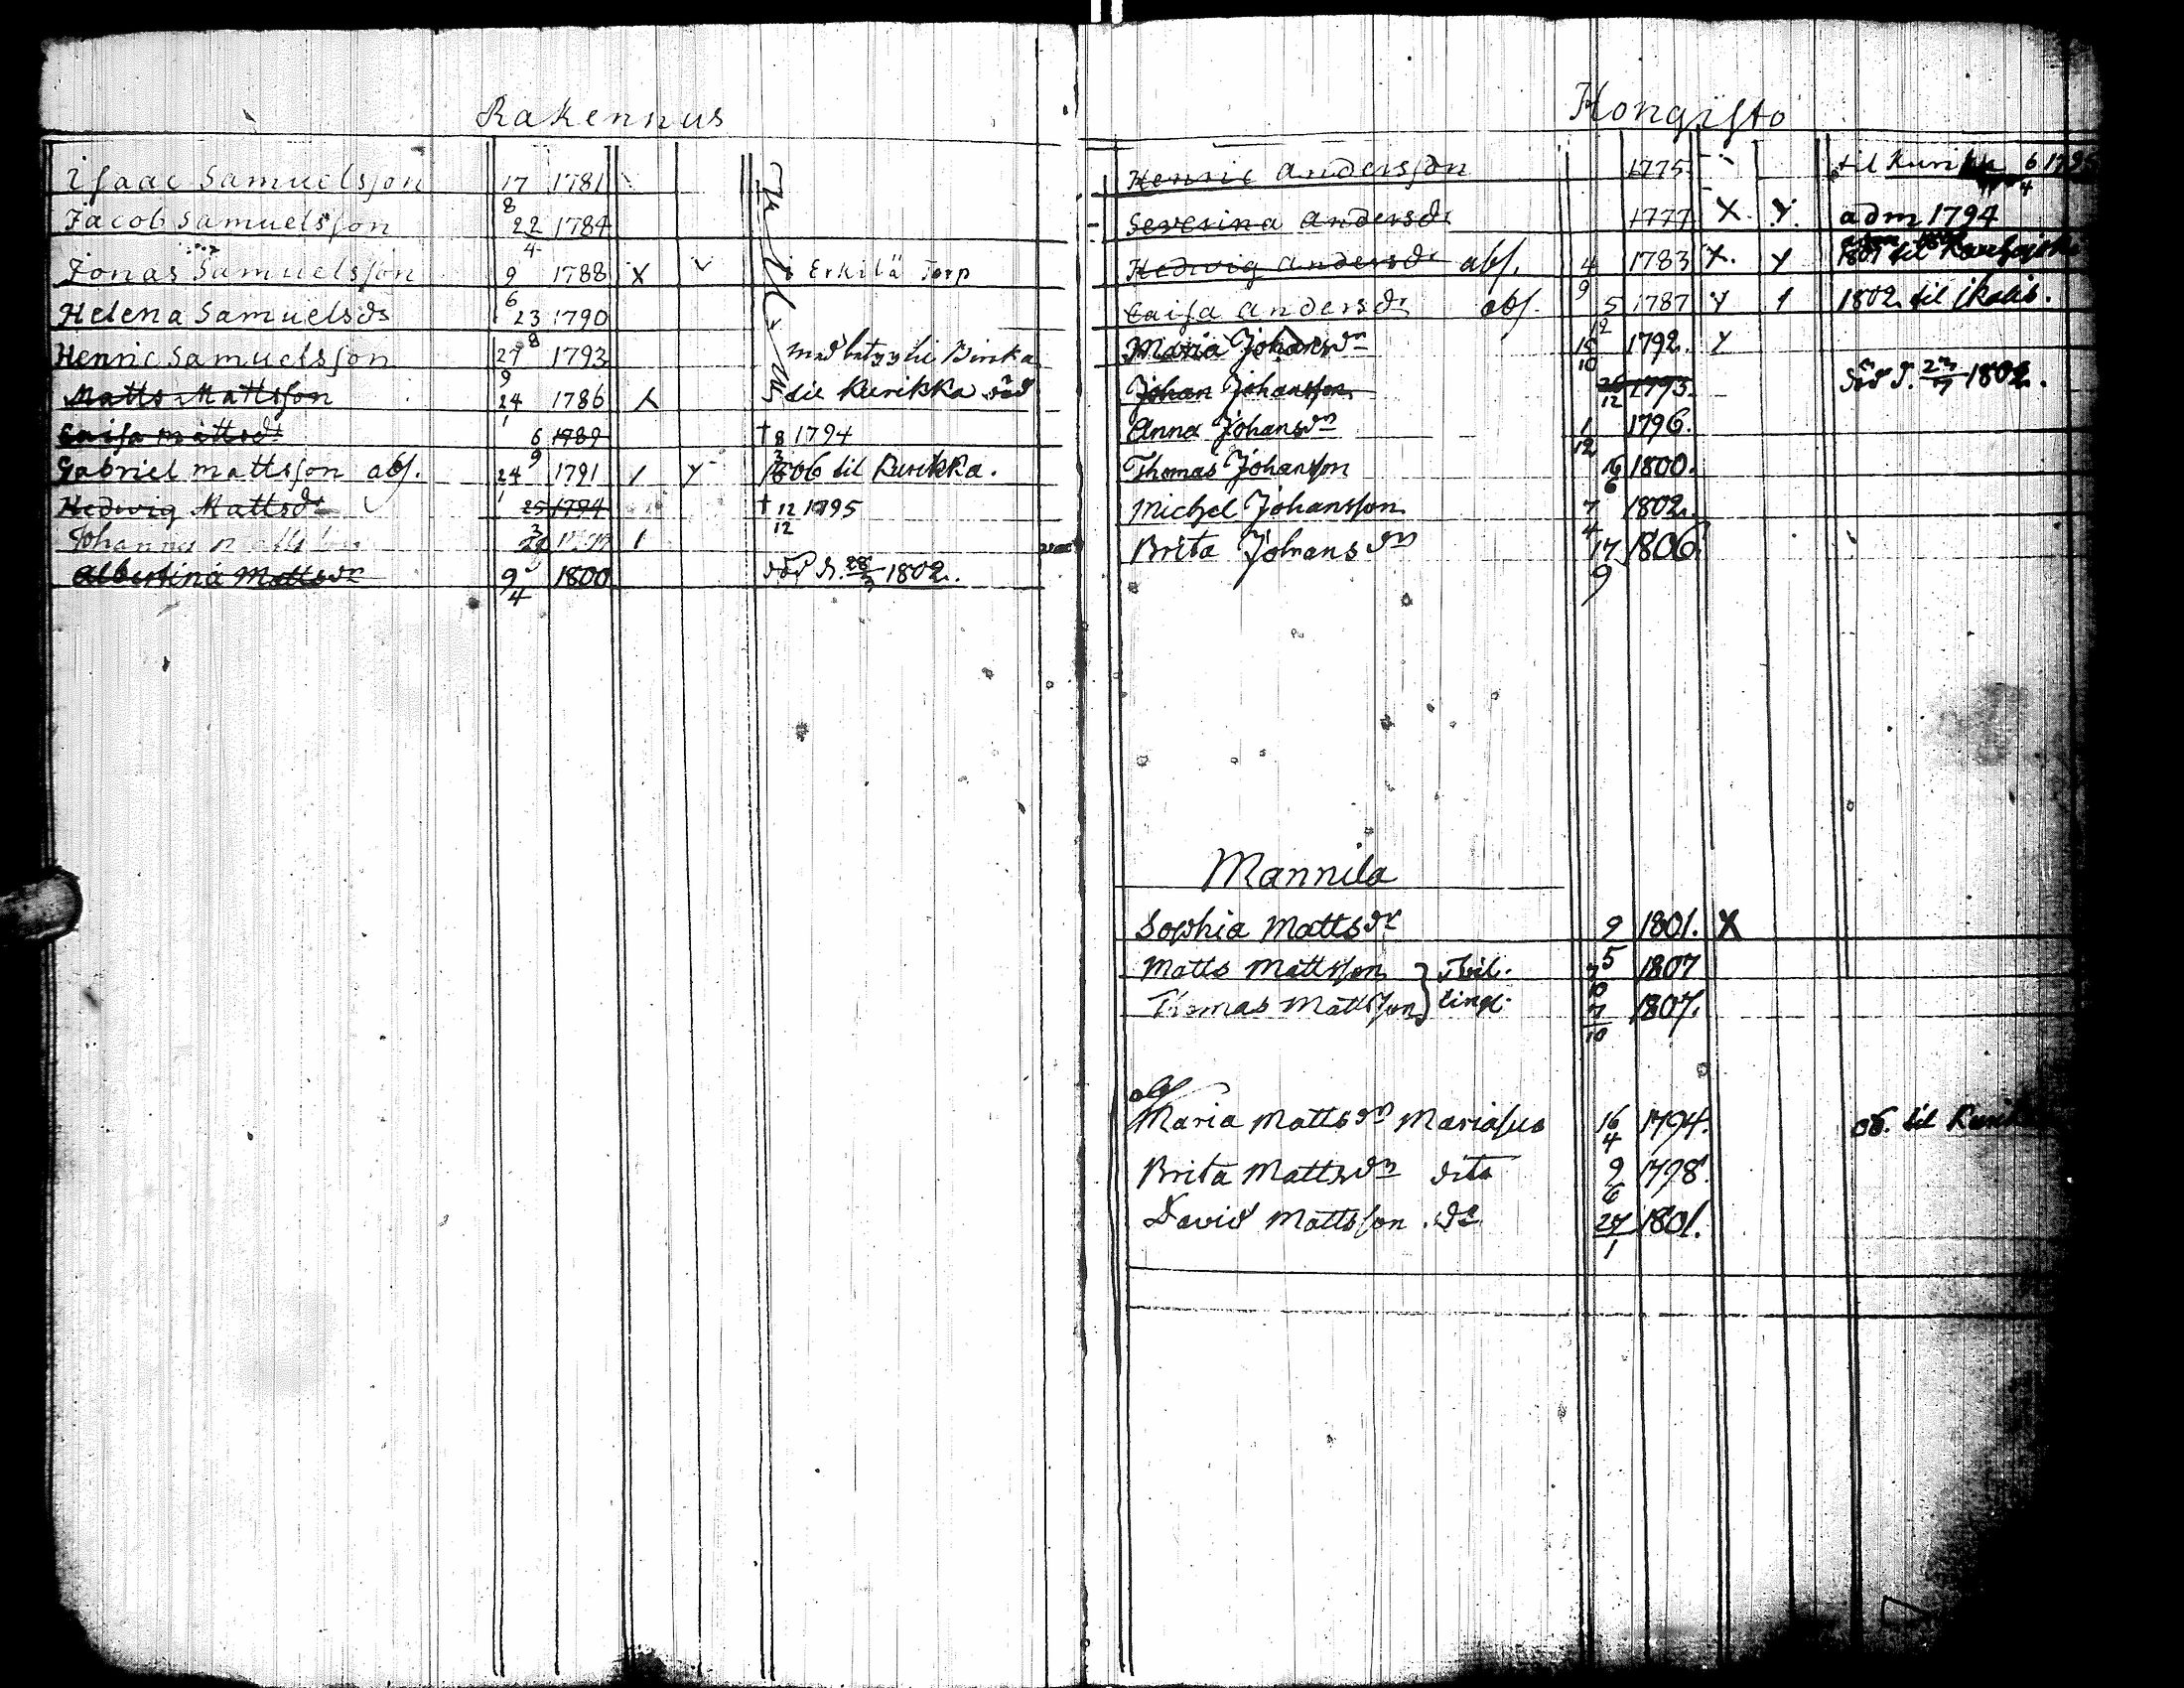 Rakennus
Isaac Samuelsson 17/8 1781
Jacob Samuelsson 22/4 1784
Jonas Samuelsson 9/6 1788 X Erkilä Torp
Helena Samuelsdr 23/8 1790
Henric Samuelsson 27/9 1793
Matts Mattsson 24/1 1786 X Kurikka
Caisa Mattsdr 6/9 1789 † 8/3 1794
Gabriel Mattsson abs. 24/1 1791 1806 til Kurikka.
Hedwig Mattsdr 25/3 1794 † 12/12 1795
Johanna
Albertina Mattsdr 9/4 1800 död d. 28/3 1802.
Hongisto
Henric Andersson 1775 til Kurikka 6/4
Severina Andersdr 1777 X Y adm 1794
Hedwig Andersdr abs. 4/9 1783 X. Y 1801 til
Caisa Andersdr abs. 5/12 1787 Y 1802 til ikalis.
Maria Johansdr 15/10 1792. Y
Johan Johansson 26/12 1793. död d. 1802.
Anna Johansdr 1/12 1796.
Thomas Johansson 16/6 1800.
Michel Johansson 7/4 1802.
Brita Johansdr 17/9 1806.
Mannila
Sophia Mattsdr 9/5 1801. X
Matts Mattsson } Tvil- 7/10 1807
Thomas Mattsson } lingr. 7/10 1807.
abs
Maria Mattsdr 16/4 1794. 06. til
Brita Mattsdr dito 9/6 1798.
David Mattsson do 27/1 1801.